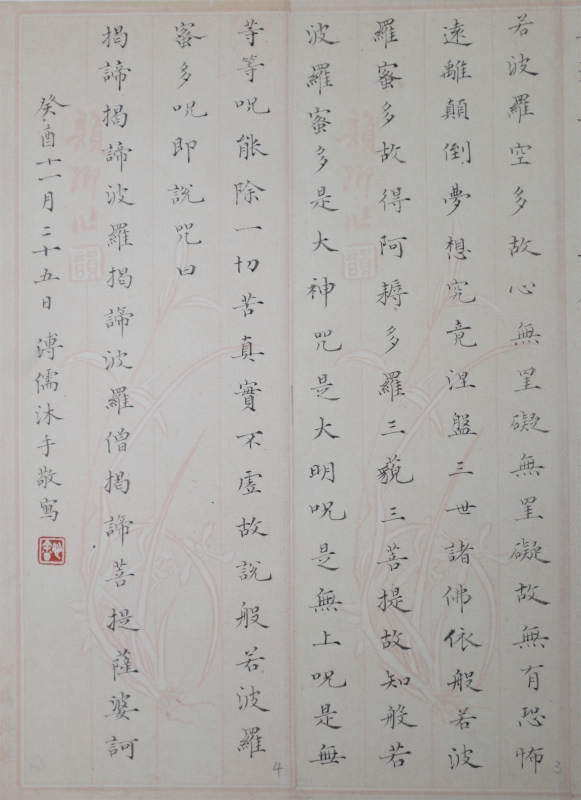 若波羅空多故心無罣礙無罣礙故無有恐怖
遠離顛倒夢想究竟涅盤三世諸佛依般若波
羅蜜多故得阿耨多羅三藐三菩提故知般若
波羅蜜多是大神咒是大明咒是無上咒是無
等等咒能除一切苦真實不虛故說般若波羅
蜜多咒即說咒曰
揭諦揭諦波羅揭諦波羅僧揭諦菩提薩婆訶
癸酉十一月二十五日 溥儒沐手敬寫
3
4